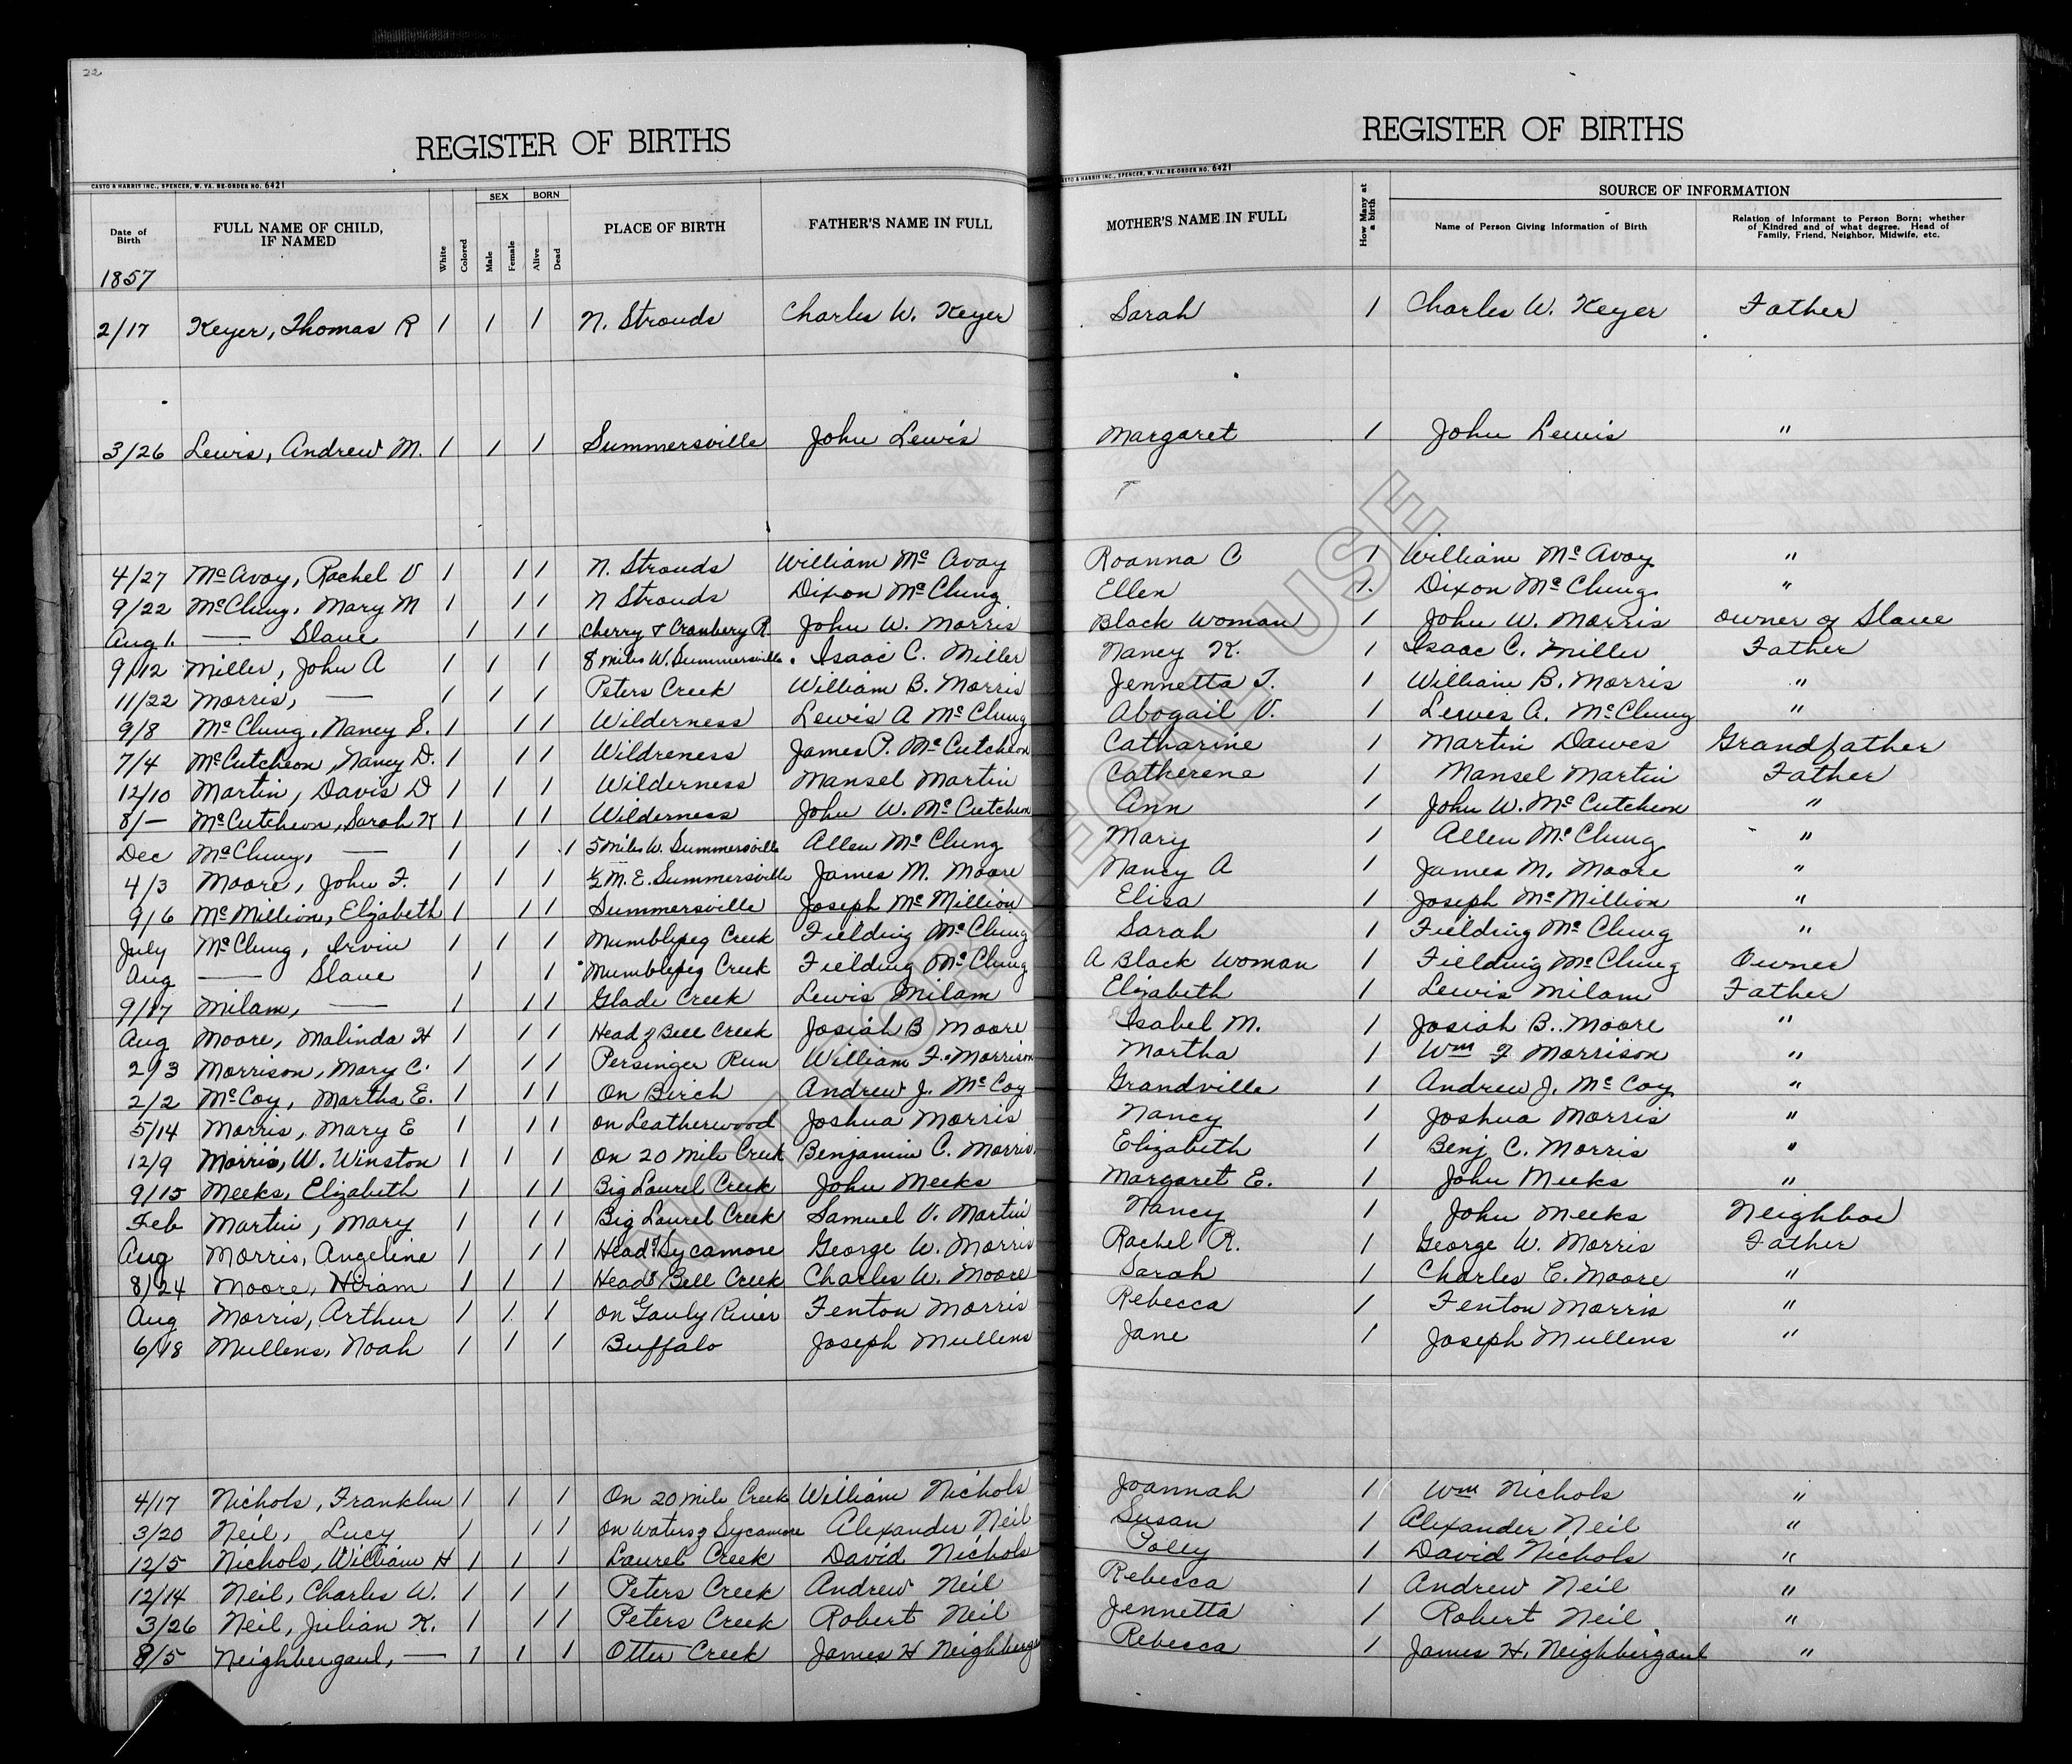 22
REGISTER OF BIRTHS
REGISTER OF BIRTHS
CASTO & HARRIS INC., SPENCER, W. VA. RE-ORDER NO. 6421
CASTO & HARRIS INC., SPENCER, W. VA. RE-ORDER NO. 6421
Date of Birth FULL NAME OF CHILD, IF NAMED White Colored SEX Male Female BORN Alive Dead PLACE OF BIRTH FATHER'S NAME IN FULL MOTHER'S NAME IN FULL How Many at a birth SOURCE OF INFORMATION Name of Person Giving Information of Birth Relation of Informant to Person Born; whether of Kindred and of what degree. Head of Family, Friend, Neighbor, Midwife, etc.
1857
2/17 Keyer, Thomas R 1 1 1 N. Strouds Charles W. Keyer Sarah 1 Charles W. Keyer Father
3/26 Lewis, Andrew M. 1 1 1 Summersville John Lewis Margaret 1 John Lewis "
4/27 McAvoy, Rachel V 1 1 1 N. Strouds William McAvoy Roanna C 1 William McAvoy "
9/22 McClung, Mary M 1 1 1 N Strouds Dixon McClung Ellen 1 Dixon McClung "
Aug 1. — Slave 1 1 1 Cherry & Cranbery R. John W. Morris Black Woman 1 John W. Morris owner of Slave
9/12 Miller, John A 1 1 1 8 miles W. Summersville Isaac C. Miller Nancy K. 1 Isaac C. Miller Father
11/22 Morris, — 1 1 1 Peters Creek William B. Morris Jennetta T. 1 William B. Morris "
9/8 McClung, Nancy S. 1 1 1 Wilderness Lewis A McClung Abogail V. 1 Lewes A. McClung "
7/4 McCutcheon, Nancy D. 1 1 1 Wildreness James P. McCutcheon Catharine 1 Martin Dawes Grandfather
12/10 Martin, Davis D 1 1 1 Wilderness Mansel Martin Catherene 1 Mansel Martin Father
8/— McCutcheon, Sarah K 1 1 1 Wilderness John W. McCutcheon Ann 1 John W. McCutcheon "
Dec McClung, — 1 1 1 5 miles W. Summersville Allen McClung Mary 1 Allen McClung "
4/3 Moore, John F. 1 1 1 ½ M. E. Summersville James M. Moore Nancy A 1 James M. Moore "
9/6 McMillion, Elizabeth 1 1 1 Summersville Joseph McMillion Eliza 1 Joseph McMillion "
July McClung, Irvin 1 1 1 Mumblepeg Creek Fielding McClung Sarah 1 Fielding McClung "
Aug — Slave 1 1 Mumblepeg Creek Fielding McClung A Black Woman 1 Fielding McClung Owner
9/17 Milam, — 1 1 1 Glade Creek Lewis Milam Elizabeth 1 Lewis Milam Father
Aug Moore, Malinda H 1 1 1 Head of Bell Creek Josiah B Moore Isabel M. 1 Josiah B. Moore "
2/3 Morrison, Mary C. 1 1 1 Persinger Run William F. Morrison Martha 1 Wm F Morrison "
2/2 McCoy, Martha E. 1 1 1 On Birch Andrew J. McCoy Grandville 1 Andrew J. McCoy "
5/14 Morris, Mary E 1 1 1 on Leatherwood Joshua Morris Nancy 1 Joshua Morris "
12/9 Morris, W. Winston 1 1 1 On 20 mile Creek Benjamin C. Morris Elizabeth 1 Benj C. Morris "
9/15 Meeks, Elizabeth 1 1 1 Big Laurel Creek John Meeks Margaret E. 1 John Meeks "
Feb Martin, Mary 1 1 1 Big Laurel Creek Samuel V. Martin Nancy 1 John Meeks Neighbor
Aug Morris, Angeline 1 1 1 Head of Sycamore George W. Morris Rachel R. 1 George W. Morris Father
8/24 Moore, Hiram 1 1 1 Head of Bell Creek Charles W. Moore Sarah 1 Charles C. Moore "
Aug Morris, Arthur 1 1 1 on Gauly River Fenton Morris Rebecca 1 Fenton Morris "
6/18 Mullens, Noah 1 1 1 Buffalo Joseph Mullens Jane 1 Joseph Mullens "
4/17 Nichols, Franklin 1 1 1 On 20 mile Creek William Nichols Joannah 1 Wm Nichols "
3/20 Neil, Lucy 1 1 1 on Waters of Sycamore Alexander Neil Susan 1 Alexander Neil "
12/5 Nichols, William H 1 1 1 Laurel Creek David Nichols Polly 1 David Nichols "
12/14 Neil, Charles W. 1 1 1 Peters Creek Andrew Neil Rebecca 1 Andrew Neil "
3/26 Neil, Julian K. 1 1 1 Peters Creek Robert Neil Jennetta 1 Robert Neil "
8/5 Neighbergaul, — 1 1 1 Otter Creek James H Neighberg Rebecca 1 James H. Neighbergaul "